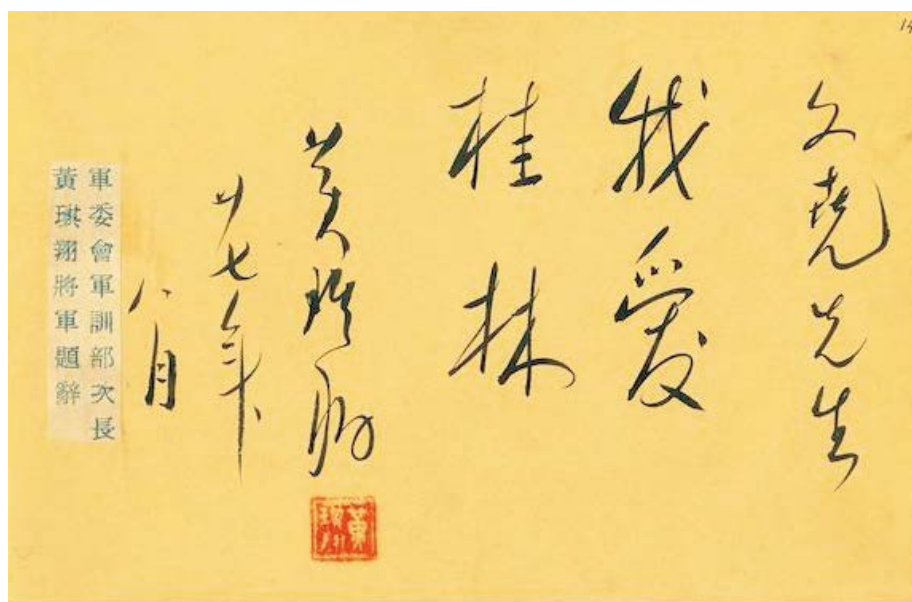 文堯先生
我愛
桂林
黃琪翔
廿七年
八月
黃琪翔
軍委會軍訓部次長
黃琪翔將軍題辭